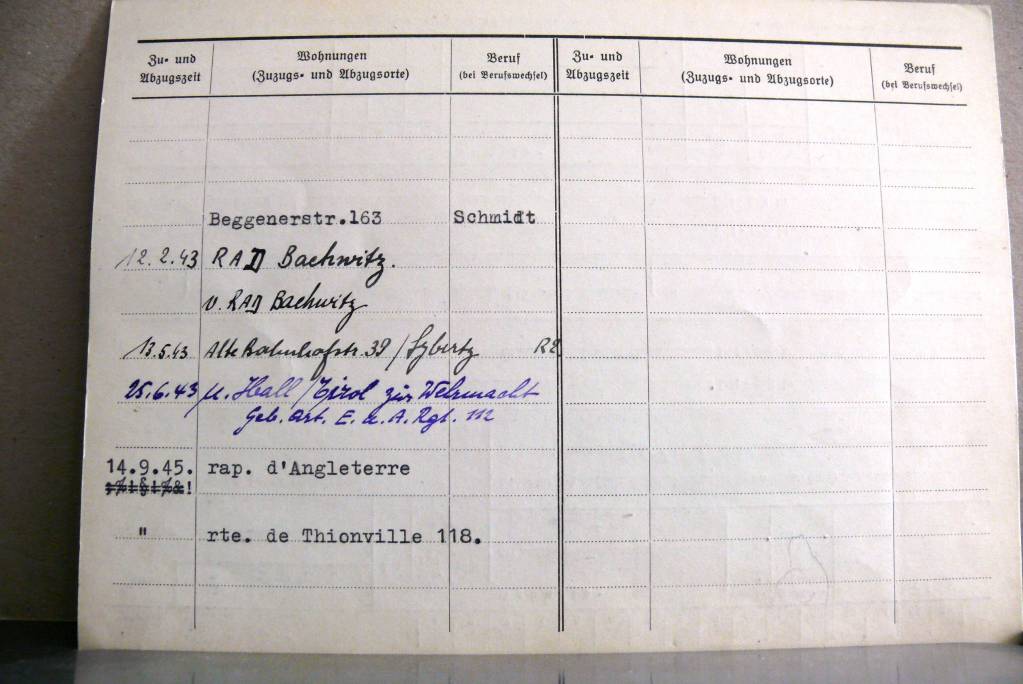 Zu- und Abzugszeit
Wohnungen
(Zuzugs- und Abzugsorte)
Beruf
(bei Berufswechsel)
Zu- und Abzugszeit
Wohnungen
(Zuzugs- und Abzugsorte)
Beruf
(bei Berufswechsel)
Beggenerstr.163 Schmidt
12.2.43 RAD Bachwitz.
v. RAD Bachwitz
13.5.43 Alte Bahnhofstr. 39 / Sybertz
25.6.43 n. Hall/Tirol zur Wehrmacht
Geb. Art. E. u. A. Rgt. 112
14.9.45. rap. d'Angleterre
" rte. de Thionville 118.